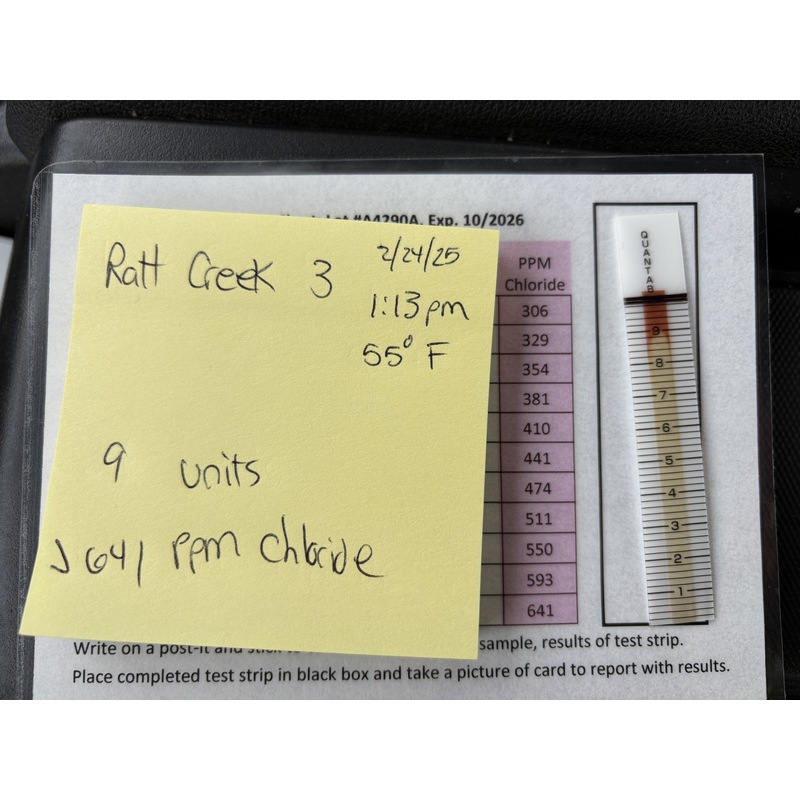 Lot #A4290A, Exp. 10/2026
Ratt Creek 3
2/24/25
1:13 pm
55° F
9 units
641 ppm chloride
PPM
Chloride
306
329
354
381
410
441
474
511
550
593
641
QUANTAB
9
8
7
6
5
4
3
2
1
Write on a post-it and sample, results of test strip.
Place completed test strip in black box and take a picture of card to report with results.